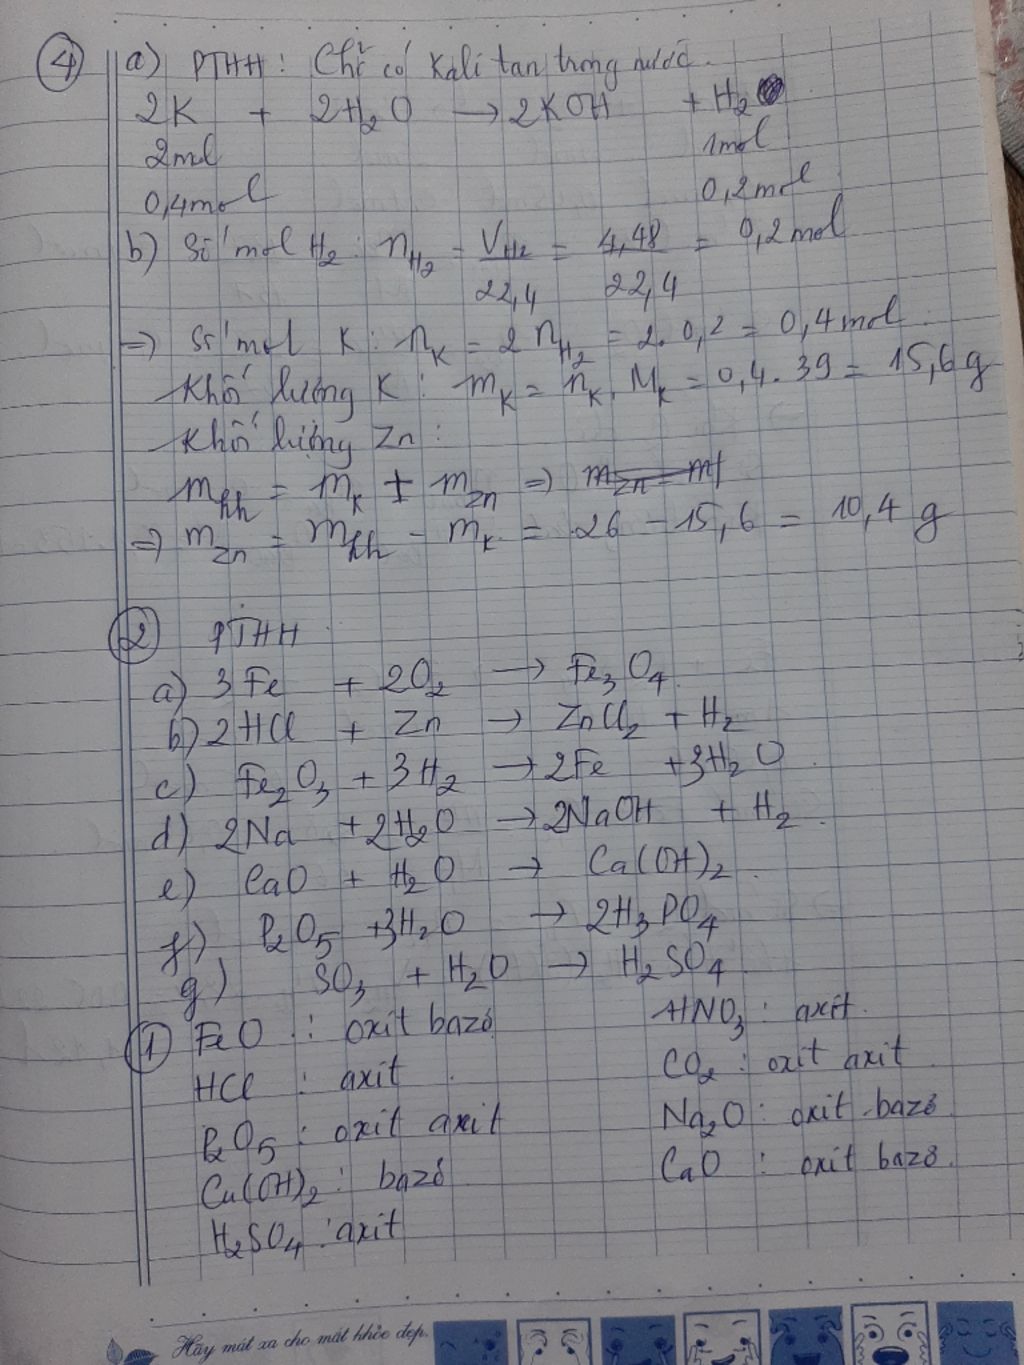 4) a) PTHH: Chỉ có Kali tan trong nước.
2K + 2H₂O → 2KOH + H₂
2ml 1mol
0,4mol 0,2mol
b) Số mol H₂: n_H₂ = V_H₂/22,4 = 4,48/22,4 = 0,2mol
=> Số mol K: n_K = 2 n_H₂ = 2.0,2 = 0,4mol.
Khối lượng K: m_K = n_K . M_K = 0,4.39 = 15,6g
Khối lượng Zn:
m_hh = m_K + m_Zn =>
=> m_Zn = m_hh - m_K = 26 - 15,6 = 10,4g
2) PTHH
a) 3Fe + 2O₂ → Fe₃O₄
b) 2HCl + Zn → ZnCl₂ + H₂
c) Fe₂O₃ + 3H₂ → 2Fe + 3H₂O
d) 2Na + 2H₂O → 2NaOH + H₂.
e) CaO + H₂O → Ca(OH)₂.
f) P₂O₅ + 3H₂O → 2H₃PO₄
g) SO₃ + H₂O → H₂SO₄
1) FeO : oxit bazơ HNO₃ : axit.
HCl : axit CO₂ : oxit axit
P₂O₅ : oxit axit Na₂O : oxit bazơ
Cu(OH)₂ : bazơ CaO : oxit bazơ.
H₂SO₄ : axit
Hãy mát xa cho mắt khỏe đẹp.